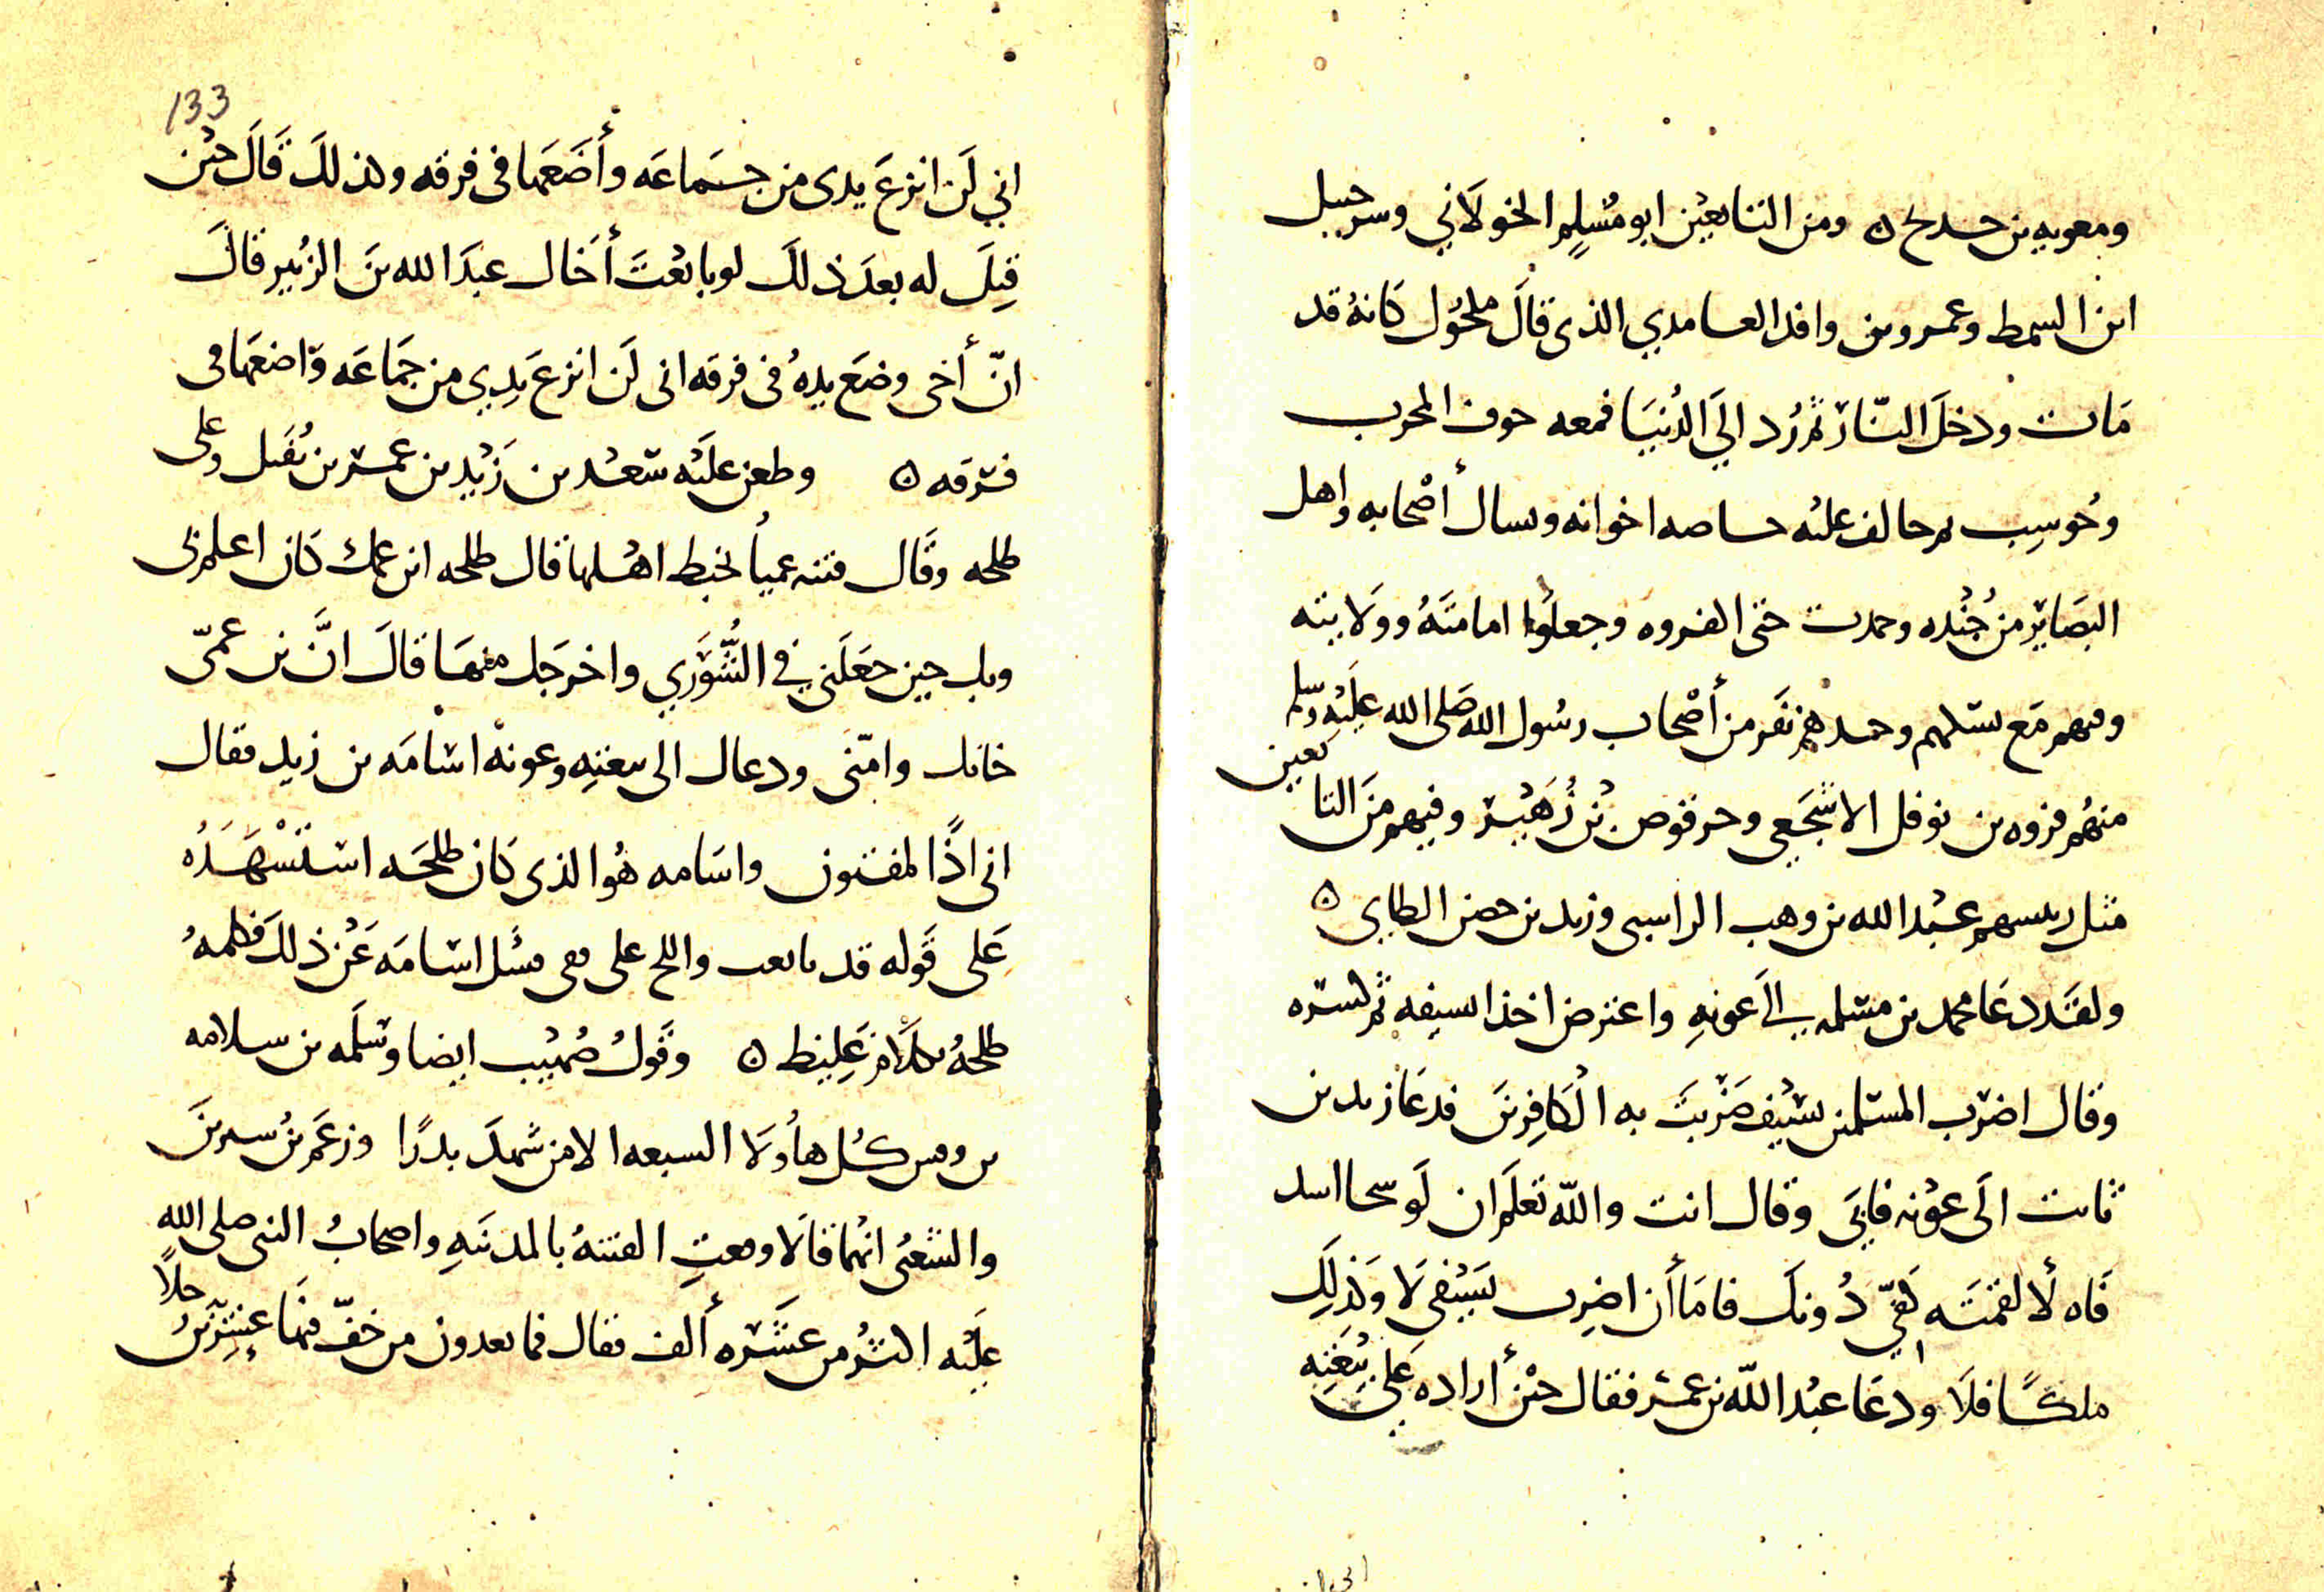 ومعويه بن حديح ٥ ومن التابعين ابو مسلم الخولاني وسرحبيل
ابن السمط وعمرو بن وافد العامدي الذي قال ملحول كانه قد
مات ودخل النار ثم رد الي الدنيا فمعه حوف المحرب
وحوسب اخوانه وسال أصحابه واهل
البصاير من جنده وحمدت حتى وجعلوا امامته وولايته
وفيهم مع نفر من أصحاب رسول الله صلى الله عليه وسلم
منهم فروه بن نوفل الاشجعي وحرقوص بن زهير وفيهم من التابعين
مثل رييسهم عبد الله بن وهب الراسبى وزيد بن حصن الطايي ٥
ولقد دعا محمد بن مسلمه الى عونه واعترض اخذا لسيفه ثم لسره
وقال اضرب المسلمين بسيف ضربت به الكافرين فدعا زيد بن
ثابت الى عونه فابى وقال انت والله تعلم ان لو سحا اسد
فاه لألقمته كفي دونك فاما أن اضرب بسيفى لا وكذلك
ملكا فلا ودعا عبد الله بن عمر فقال حين أراده على بيعته
133
اني لن انزع يدى من جماعه وأضعها فى فرقه وكذلك قال حين
قيل له بعد ذلك لو بايعت أخاك عبد الله بن الزبير قال
ان أخى وضع يده فى فرقه انى لن انزع يدي من جماعه واضعها فى
فرقه ٥ وطعن عليه سعد بن زيد بن عمر بن نفيل وعلى
طلحه وقال فتنه عميا تخبط اهلها قال طلحه ابن عمك كان اعلم بى
وبك حين جعلني في الشوري واخرجك منها قال ان بن عمى
خانك وامنى ودعاك الى بيعته وعونه اسامه بن زيد فقال
انى اذا لمفتون واسامه هو الذى كان طلحه استسهده
على قوله قد بايعت واللج على قفى فسل اسامه عن ذلك فكلمه
طلحه بكلام غليظ ٥ وقول صهيب ايضا وسلمه بن سلامه
بن وفس كل هاولا السبعه الا من شهد بدرا وزعم بن سيرين
والشعبى انهما قالا وقعت الفتنه بالمدينه واصحاب النبى صلى الله
عليه اكثر من عشره ألف فقال فما يعدون من خف فيها عشرين رجلا